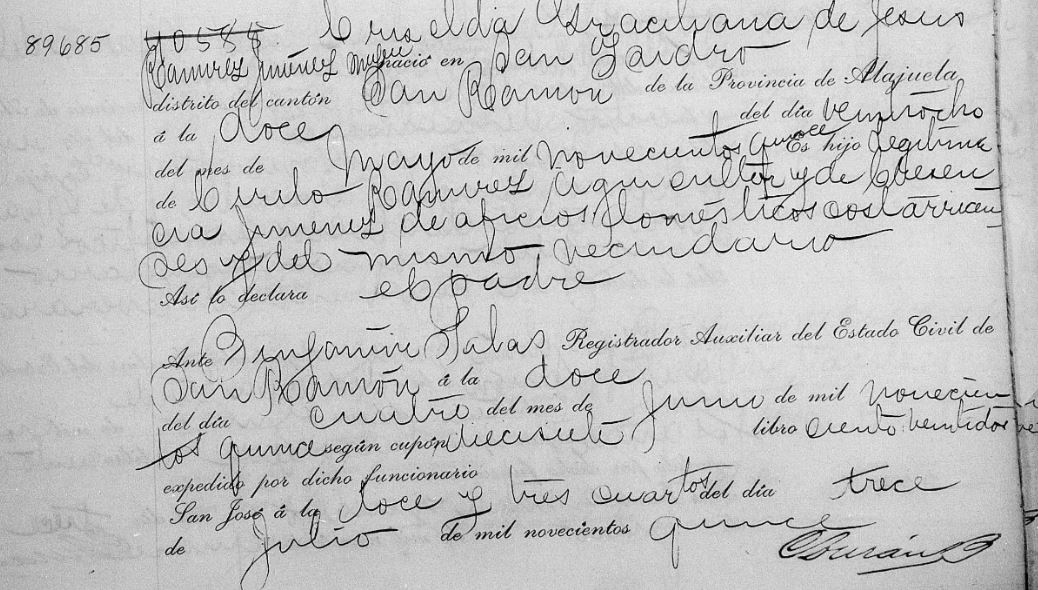 89685 Criselda Graciliana de Jesus
Ramirez Jiménez mujer nació en San Isidro
distrito del cantón San Ramón de la Provincia de Alajuela
á la doce del día veintiocho
del mes de Mayo de mil novecientos quince Es hijo legitima
de Cirilo Ramirez agricultor y de Cresen
cia Jimenez de oficios domésticos costarricen
ses y del mismo vecindario
Así lo declara el padre
Ante Benjamin Salas Registrador Auxiliar del Estado Civil de
San Ramón á la doce
del día cuatro del mes de Junio de mil novecien
tos quince según cupón diecisiete libro ciento veintidos
expedido por dicho funcionario
San José á la doce y tres cuartos del día trece
de Julio de mil novecientos quince